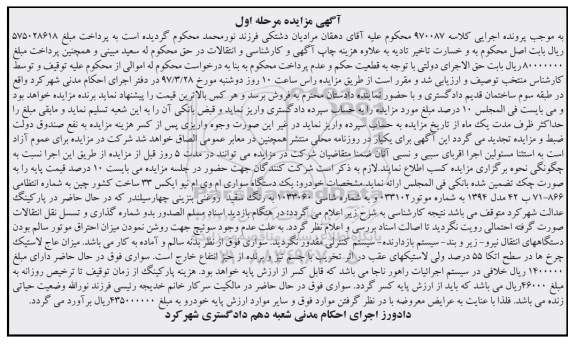 آگهی مزایده مرحله اول
به موجب پرونده اجرایی کلاسه ۹۷۰۰۸۷ محکوم علیه آقای دهقان مرادیان دشتکی فرزند نورمحمد محکوم گردیده است به پرداخت مبلغ ۵۷۵۰۲۸۶۱۸
ریال بابت اصل محکوم به و خسارت تاخیر تادیه به علاوه هزینه چاپ آگهی و کارشناسی و انتقالات در حق محکوم له سعید مبینی و همچنین پرداخت مبلغ
۸۰۰۰۰۰۰۰ ریال بابت حق الاجرای دولتی با توجه به قطعیت حکم و عدم پرداخت محکوم به بنا به درخواست محکوم له اموالی از محکوم علیه توقیف و توسط
کارشناس منتخب توصیف و ارزیابی شد و مقرر است از طریق مزایده راس ساعت ۱۰ روز دوشنبه مورخ ۹۷/۳/۲۸ در دفتر اجرای احکام مدنی شهرکرد واقع
در طبقه سوم ساختمان قدیم دادگستری و با حضور نماینده دادستان محترم به فروش برسد و هر کس بالاترین قیمت را پیشنهاد نماید برنده مزایده خواهد بود
و می بایست فی المجلس ۱۰ درصد مبلغ مورد مزایده را به حساب سپرده دادگستری واریز نماید و قبض بانکی آن را به این شعبه تسلیم نماید و مابقی مبلغ را
حداکثر ظرف مدت یک ماه از تاریخ مزایده به حساب سپرده واریز نماید در غیر این صورت وجوه واریزی پس از کسر هزینه مزایده به نفع صندوق دولت
ضبط و مزایده تجدید می گردد این آگهی برای یکبار در روزنامه محلی منتشر همچنین در معابر عمومی الصاق خواهد شد شرکت در مزایده برای عموم آزاد
است به استثنا مسئولین اجرا اقربای سببی و نسبی آنان ضمنا متقاضیان شرکت در مزایده می توانند در مهلت ۵ روز قبل از مزایده از طریق این اجرا نسبت به
چگونگی نحوه برگزاری مزایده کسب اطلاع نمایند. لازم به ذکر است شرکت کنندگان جهت حضور در جلسه مزایده می بایست ۱۰ درصد قیمت پایه را به
صورت چک تضمین شده بانکی فی المجلس ارائه نمایند. مشخصات خودرو: یک دستگاه سواری ام وی ام تیو ایکس ۳۳ ساخت کشور چین به شماره انتظامی
۷۱-۸۶۶ ب ۴۲ مدل ۱۳۹۴ به شماره موتور ۰۳۳۱۰۲ و به شماره شاسی ۱۰۳۳۰۶۰ به رنگ سفید روغنی بنزینی چهارسیلندر که در حال حاضر در پارکینگ
عدالت شهرکرد متوقف می باشد نتیجه کارشناسی به شرح زیر اعلام می گردد: در هنگام بازدید اسناد مسلم الصدور بدو شماره گذاری و تسلسل نقل انتقالات
صورت گرفته احتمالی رویت نگردید تا اصالت اسناد بررسی و اعلام نظر گردد. به علت عدم وجود سوئیچ جهت روشن نمودن میزان احتراق موتور سالم بودن
دستگاههای انتقال نیرو- زیر و بند- سیستم بازدارنده- سیستم کنترلی مقدور نگردید. سواری فوق از نظر بدنه سالم و آماده به کار می باشد. میزان عاج لاستیک
چرخ ها در سطح اتکا ۵۵ درصد ولی لاستیکهای عقب در اثر تخریب با تیغ تیز و برنده از حیز انتفاع خارج است. سواری فوق در حال حاضر دارای مبلغ
۱۴۰۰۰۰۰ ریال خلافی در سیستم اجرائیات راهور ناجا می باشد که قابل کسر از ارزش پایه خواهد بود. هزینه پارکینگ از زمان توقیف تا ترخیص روزانه به
مبلغ ۴۶۰۰۰ ریال می باشد که باید از ارزش پایه کسر گردد. سواری فوق در حال حاضر در مالکیت سرکار خانم خدیجه رئیسی فرزند نورالله وضعیت حیاتی
زنده می باشد. فلذا با عنایت به عرایض معروضه با در نظر گرفتن موارد فوق و سایر موارد ارزش پایه خودرو به مبلغ ۴۳۵۰۰۰۰۰۰ ریال برآورد می گردد.
دادورز اجرای احکام مدنی شعبه دهم دادگستری شهرکرد